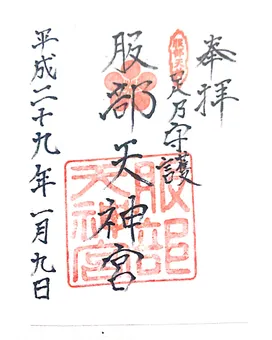 奉拝
服部天神
足乃守護
服部天神宮
服部天神宮
平成二十九年一月九日